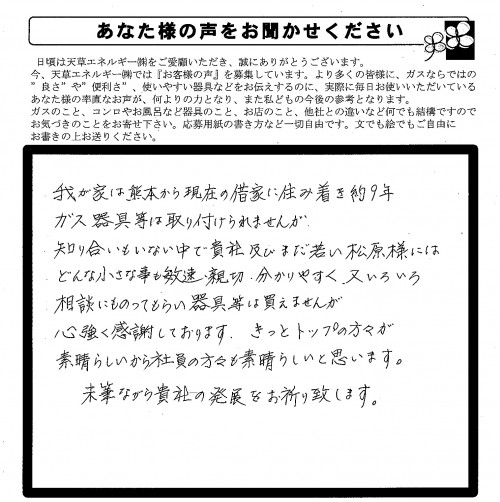 あなた様の声をお聞かせください
日頃は天草エネルギー㈱をご愛顧いただき、誠にありがとうございます。
今、天草エネルギー㈱では『お客様の声』を募集しています。より多くの皆様に、ガスならではの
”良さ”や”便利さ”、使いやすい器具などをお伝えするのに、実際に毎日お使いいただいている
あなた様の率直なお声が、何よりの力となり、また私どもの今後の参考となります。
ガスのこと、コンロやお風呂など器具のこと、お店のこと、他社との違いなど何でも結構ですので
お気づきのことをお寄せ下さい。応募用紙の書き方など一切自由です。文でも絵でもご自由に
お書きの上お送りください。
我が家は熊本から現在の借家に住み着き約9年
ガス器具等は取り付けられませんが
知り合いもいない中で貴社及びまだ若い松原様には
どんな小さな事も敏速・親切・分かりやすく、又いろいろ
相談にものってもらい器具等は買えませんが
心強く感謝しております。きっとトップの方々が
素晴らしいから社員の方々も素晴らしいと思います。
末筆ながら貴社の発展をお祈り致します。